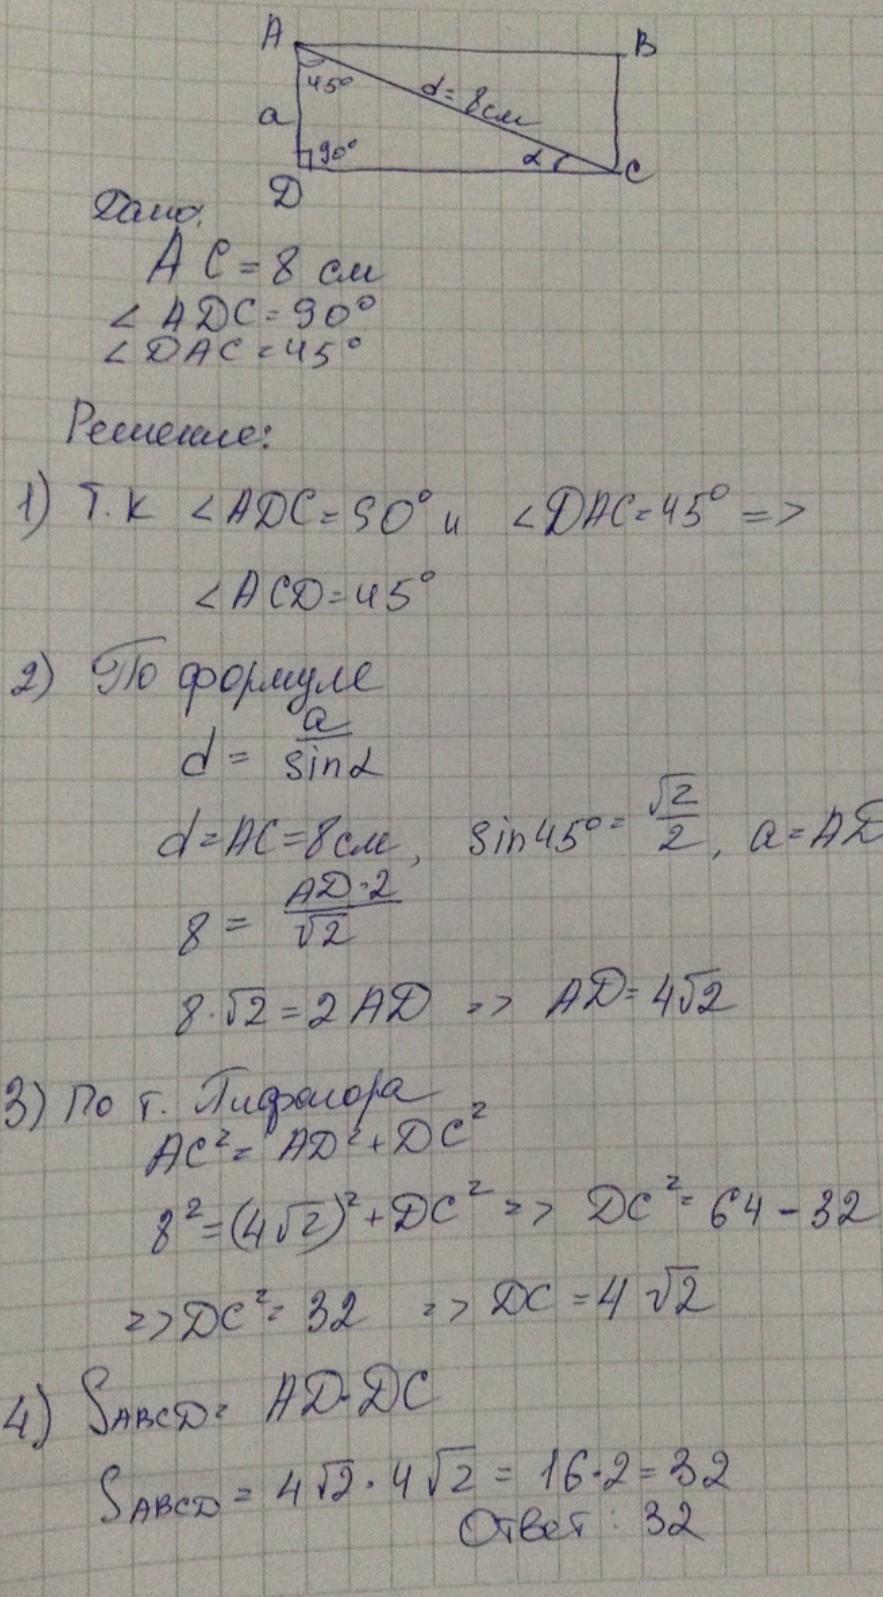 A B
45° d=8см
a
90° α C
D
Дано:
AC=8 см
∠ADC=90°
∠DAC=45°
Решение:
1) Т.к ∠ADC=90° и ∠DAC=45° =>
∠ACD=45°
2) По формуле
d = a/sinα
d=AC=8см, sin45°=√2/2, a=AD
8 = AD·2/√2
8·√2=2AD => AD=4√2
3) По т. Пифагора
AC²=AD²+DC²
8²=(4√2)²+DC² => DC²=64-32
=> DC²=32 => DC=4√2
4) SABCD= AD·DC
SABCD = 4√2·4√2 = 16·2=32
Ответ: 32